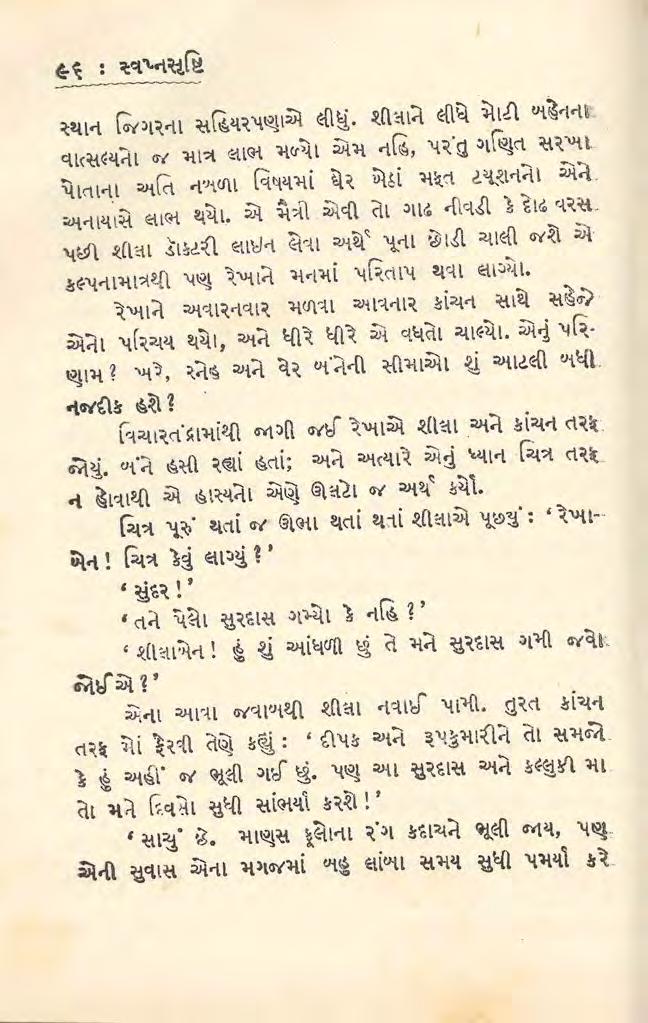 ૯૬ : સ્વપ્નસૃષ્ટિ
સ્થાન જિગરના સહિયરપણાએ લીધું. શીલાને લીધે મોટી બહેનના
વાત્સલ્યનો જ માત્ર લાભ મળ્યો એમ નહિ, પરંતુ ગણિત સરખા
પોતાના અતિ નબળા વિષયમાં ઘેર બેઠાં મફત ટ્યૂશનનો એને
અનાયાસે લાભ થયો. એ મૈત્રી એવી તો ગાઢ નીવડી કે દોઢ વરસ
પછી શીલા ડૉક્ટરી લાઇન લેવા અર્થે પૂના છોડી ચાલી જશે એ
કલ્પનામાત્રથી પણ રેખાને મનમાં પરિતાપ થવા લાગ્યો.
રેખાને અવારનવાર મળવા આવનાર કાંચન સાથે સહેજે
એનો પરિચય થયો, અને ધીરે ધીરે એ વધતો ચાલ્યો. એનું પરિ-
ણામ? ખરે, સ્નેહ અને વેર બંનેની સીમાઓ શું આટલી બધી
નજદીક હશે?
વિચારતંદ્રામાંથી જાગી જઈ રેખાએ શીલા અને કાંચન તરફ
જોયું. બંને હસી રહ્યાં હતાં; અને અત્યારે એનું ધ્યાન ચિત્ર તરફ
ન હોવાથી એ હાસ્યનો એણે ઊલટો જ અર્થ કર્યો.
ચિત્ર પૂરું થતાં જ ઊભા થતાં થતાં શીલાએ પૂછ્યું : ‘ રેખા-
બેન! ચિત્ર કેવું લાગ્યું?’
‘ સુંદર!’
‘ તને પેલો સુરદાસ ગમ્યો કે નહિ?’
‘ શીલાબેન! હું શું આંધળી છું તે મને સુરદાસ ગમી જવો
જોઈએ?’
એના આવા જવાબથી શીલા નવાઈ પામી. તુરત કાંચન
તરફ મોં ફેરવી તેણે કહ્યું : ‘ દીપક અને રૂપકુમારીને તો સમજો
કે હું અહીં જ ભૂલી ગઈ છું. પણ આ સુરદાસ અને કલ્લુકી મા
તો મને દિવસો સુધી સાંભર્યા કરશે!’
‘ સાચું છે. માણસ ફૂલોના રંગ કદાચને ભૂલી જાય, પણ
એની સુવાસ એના મગજમાં બહુ લાંબા સમય સુધી પમર્યા કરે